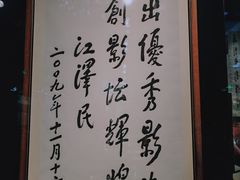 出優秀影
創影壇輝煌
江澤民
二〇〇九年十二月十